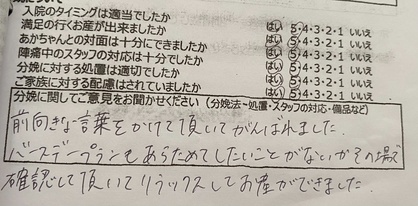 入院のタイミングは適当でしたか はい 5・4・3・2・1 いいえ
満足の行くお産が出来ましたか はい 5・4・3・2・1 いいえ
あかちゃんとの対面は十分にできましたか はい 5・4・3・2・1 いいえ
陣痛中のスタッフの対応は十分でしたか はい 5・4・3・2・1 いいえ
分娩に対する処置は適切でしたか はい 5・4・3・2・1 いいえ
ご家族に対する配慮はされていましたか はい 5・4・3・2・1 いいえ
分娩に関してご意見をお聞かせください（分娩法・処置・スタッフの対応・備品など）
前向きな言葉をかけて頂いてがんばれました.
バースデープランもあらためてしたいことがないかその場で
確認して頂いてリラックスしてお産ができました.